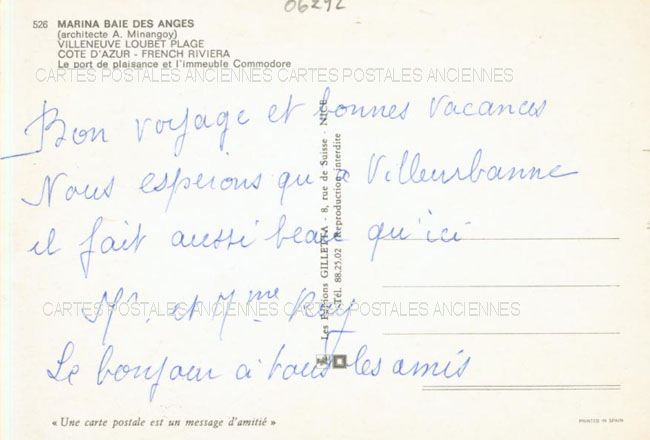 06292
526 MARINA BAIE DES ANGES
(architecte A. Minangoy)
VILLENEUVE LOUBET PLAGE
COTE D'AZUR - FRENCH RIVIERA
Le port de plaisance et l'immeuble Commodore
CARTES POSTALES ANCIENNES CARTES POSTALES ANCIENNES
Bon voyage et bonnes vacances
Nous esperons qu'a Villeurbanne
il fait aussi beau qu'ici
Mr. et Mme Rey
CARTES POSTALES ANCIENNES CARTES POSTALES ANCIENNES
Le bonjour à tous les amis
Les Editions GILLETTA - 8, rue de Suisse - NICE
Tél. 88.25.02 (Reproduction interdite
« Une carte postale est un message d'amitié »
PRINTED IN SPAIN